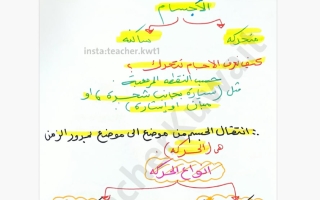 الأجسام
متحركة ساكنة
insta:teacher.kwt1
كيف نعرف الأجسام تتحرك؟
حسب النقطة المرجعية
مثل (سيارة بجانب شجرة) أو
مبنى أو إشارة)
∴ انتقال الجسم من موضع الى موضع بمرور الزمن
هي (الحركة)
انواع الحركة